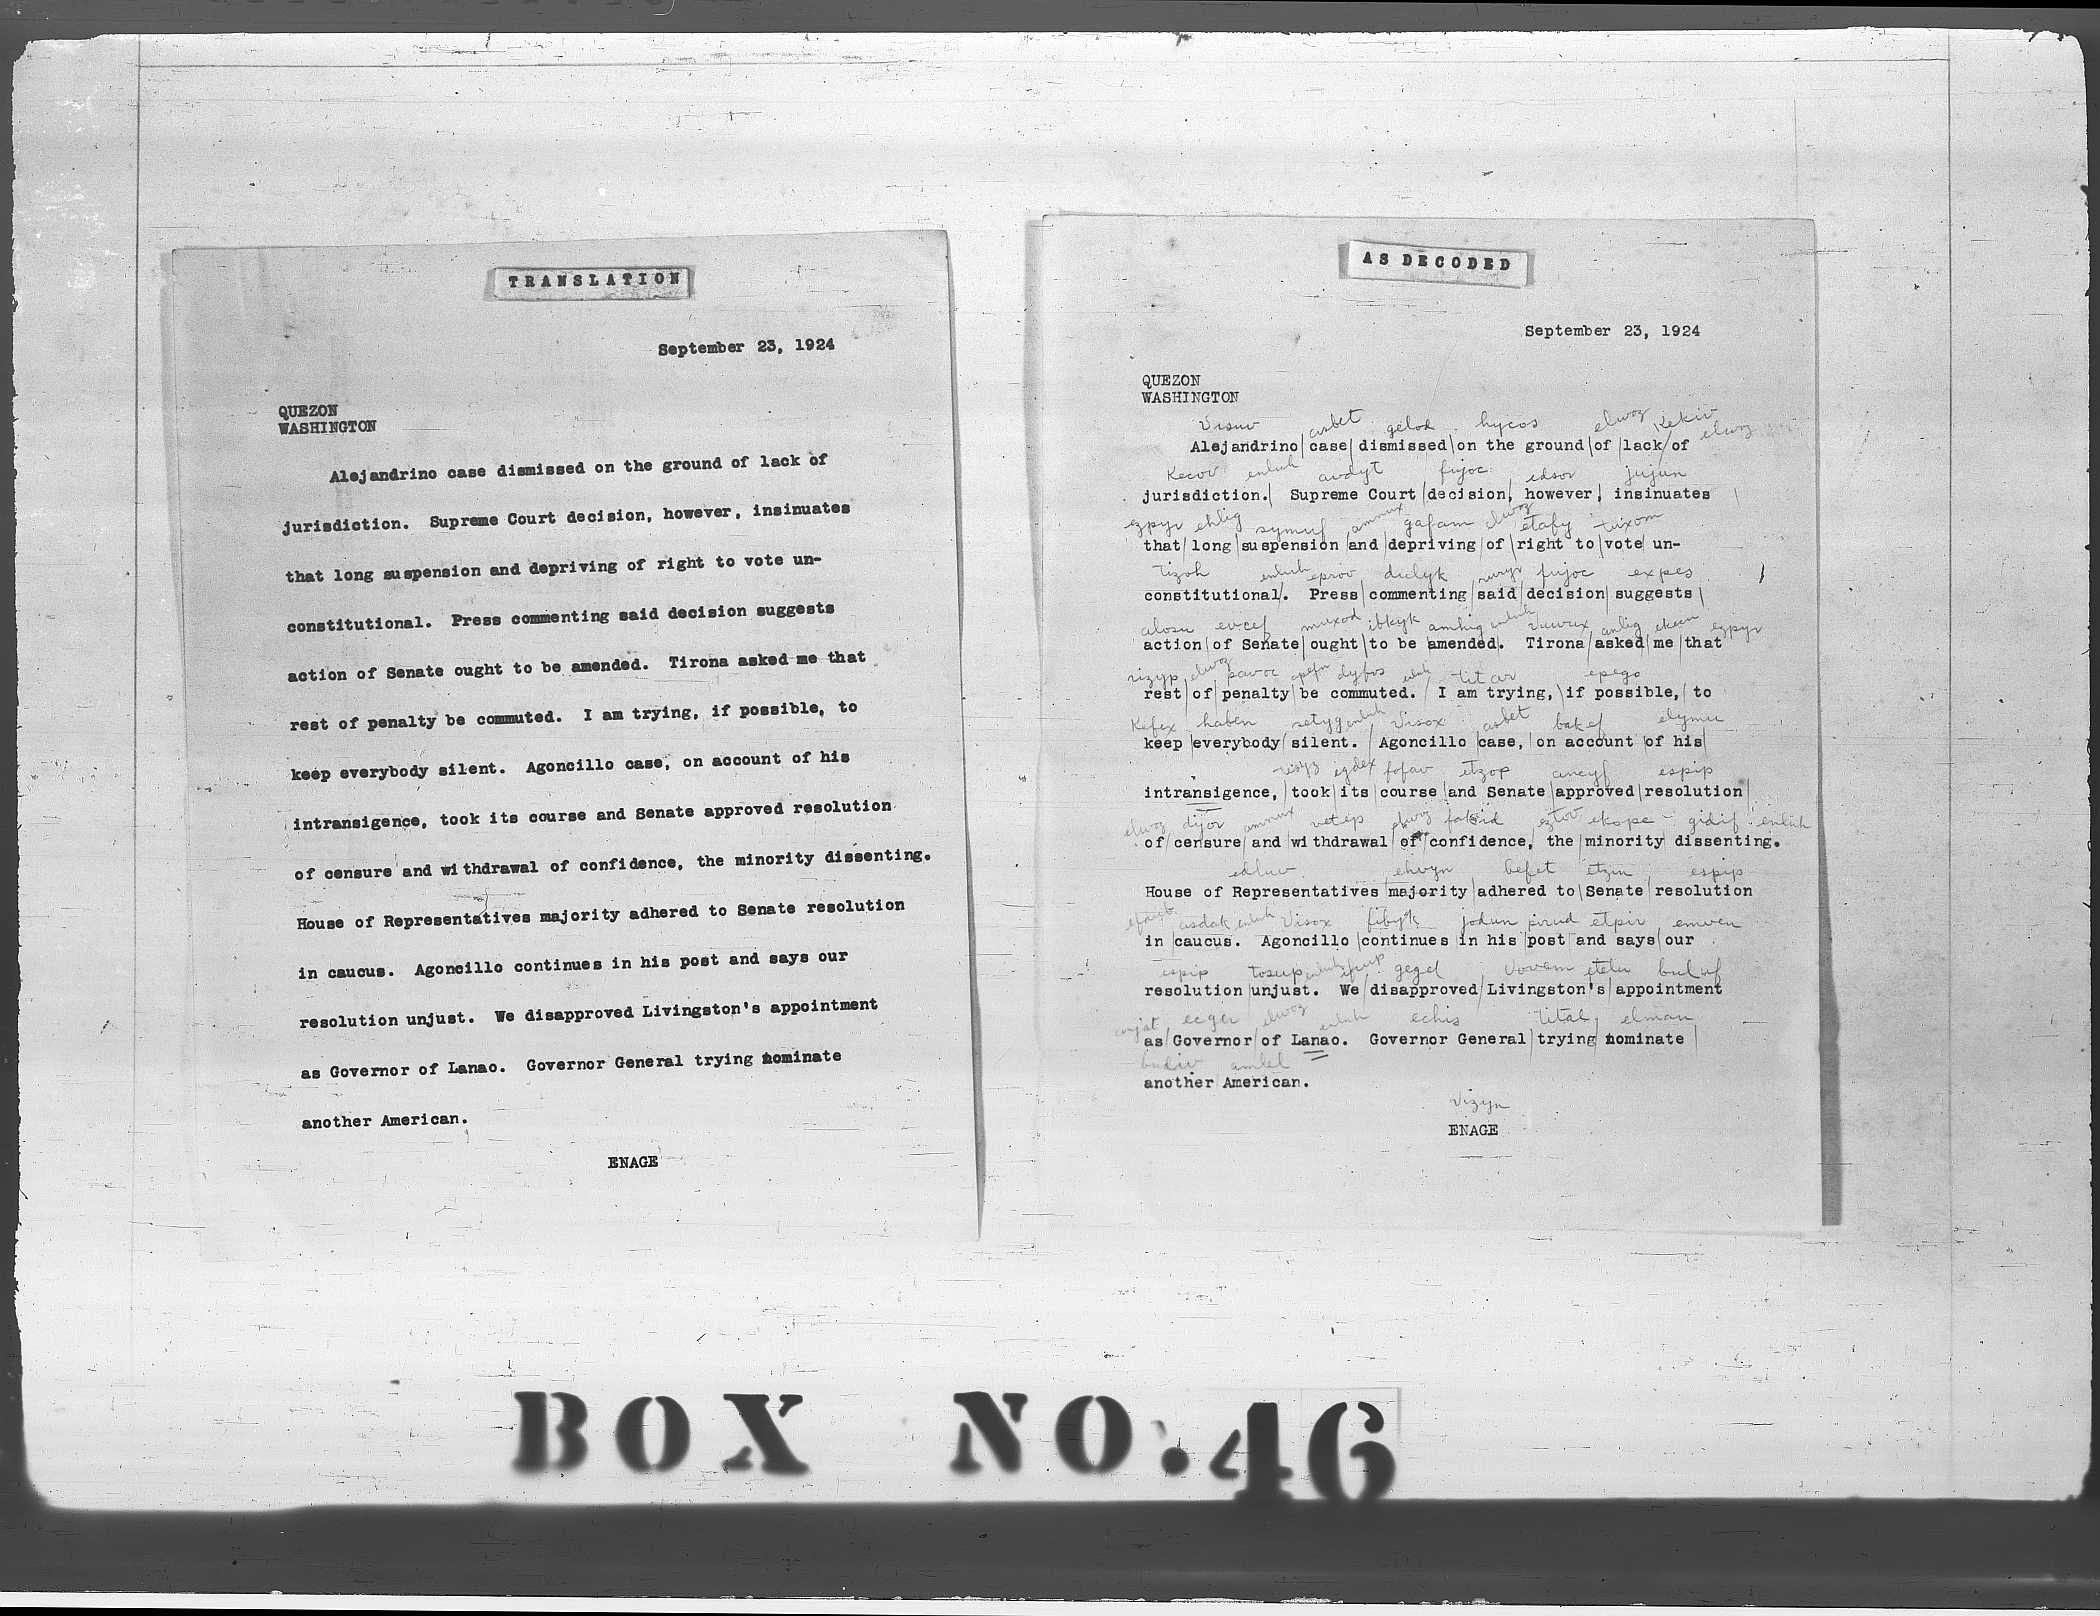 TRANSLATION
September 23, 1924
QUEZON
WASHINGTON
Alejandrino case dismissed on the ground of lack of
jurisdiction. Supreme Court decision, however, insinuates
that long suspension and depriving of right to vote un-
constitutional. Press commenting said decision suggests
action of Senate ought to be amended. Tirona asked me that
rest of penalty be commuted. I am trying, if possible, to
keep everybody silent. Agoncillo case, on account of his
intransigence, took its course and Senate approved resolution
of censure and withdrawal of confidence, the minority dissenting.
House of Representatives majority adhered to Senate resolution
in caucus. Agoncillo continues in his post and says our
resolution unjust. We disapproved Livingston's appointment
as Governor of Lanao. Governor General trying nominate
another American.
ENAGE
AS DECODED
September 23, 1924
QUEZON
WASHINGTON
Visuv asbet gelod hycos elwoz kekiv elwoz
Alejandrino/case/dismissed/on the ground/of/lack/of
Kecov enluh avdyt fujoc edsor jujun
jurisdiction./ Supreme Court/decision, however, insinuates
ezpyr ehlig symuf amnux gafam elwoz etafy tuxom
that/long/suspension/and/depriving/of/right to/vote un-
tizoh enluh eprov diclyk ruryr fujoc expes
constitutional/. Press/commenting/said/decision/suggests
alosu evcef muxod ibkyk amhig enluh Vuwux anlig ekem ezpyr
action/of Senate/ought/to be/amended. Tirona/asked/me/that
rizyp elwoz pavoc apefn dyfos enluh titar epego
rest/of/penalty/be commuted./ I am trying,/if possible,/to
Kefex haben setyg enluh Visox asbet bakef elymu
keep/everybody/silent./ Agoncillo/case,/on account/of his
egdex fofav etzop ancyf espip
intransigence,/took/its/course/and Senate/approved/resolution
elwoz dijor amnux vetep elwoz eztov ekope gidif enluh
of/censure/and/withdrawal/of/confidence, the/minority/dissenting.
edluv ehvyn befet etzin espip
House of Representatives/majority/adhered to/Senate/resolution
asdak enluh Visox fibyk jodun pirud etpir emven
in/caucus. Agoncillo/continues/in his/post/and says/our
espip tosup enluh gegel Vovem etelu buluf
resolution/unjust. We/disapproved/Livingston's/appointment
ecger elwoz enluh echis titar elman
as/Governor/of Lanao. Governor General/trying/nominate
budiv amlel
another/American.
Vizyn
ENAGE
BOX NO. 46